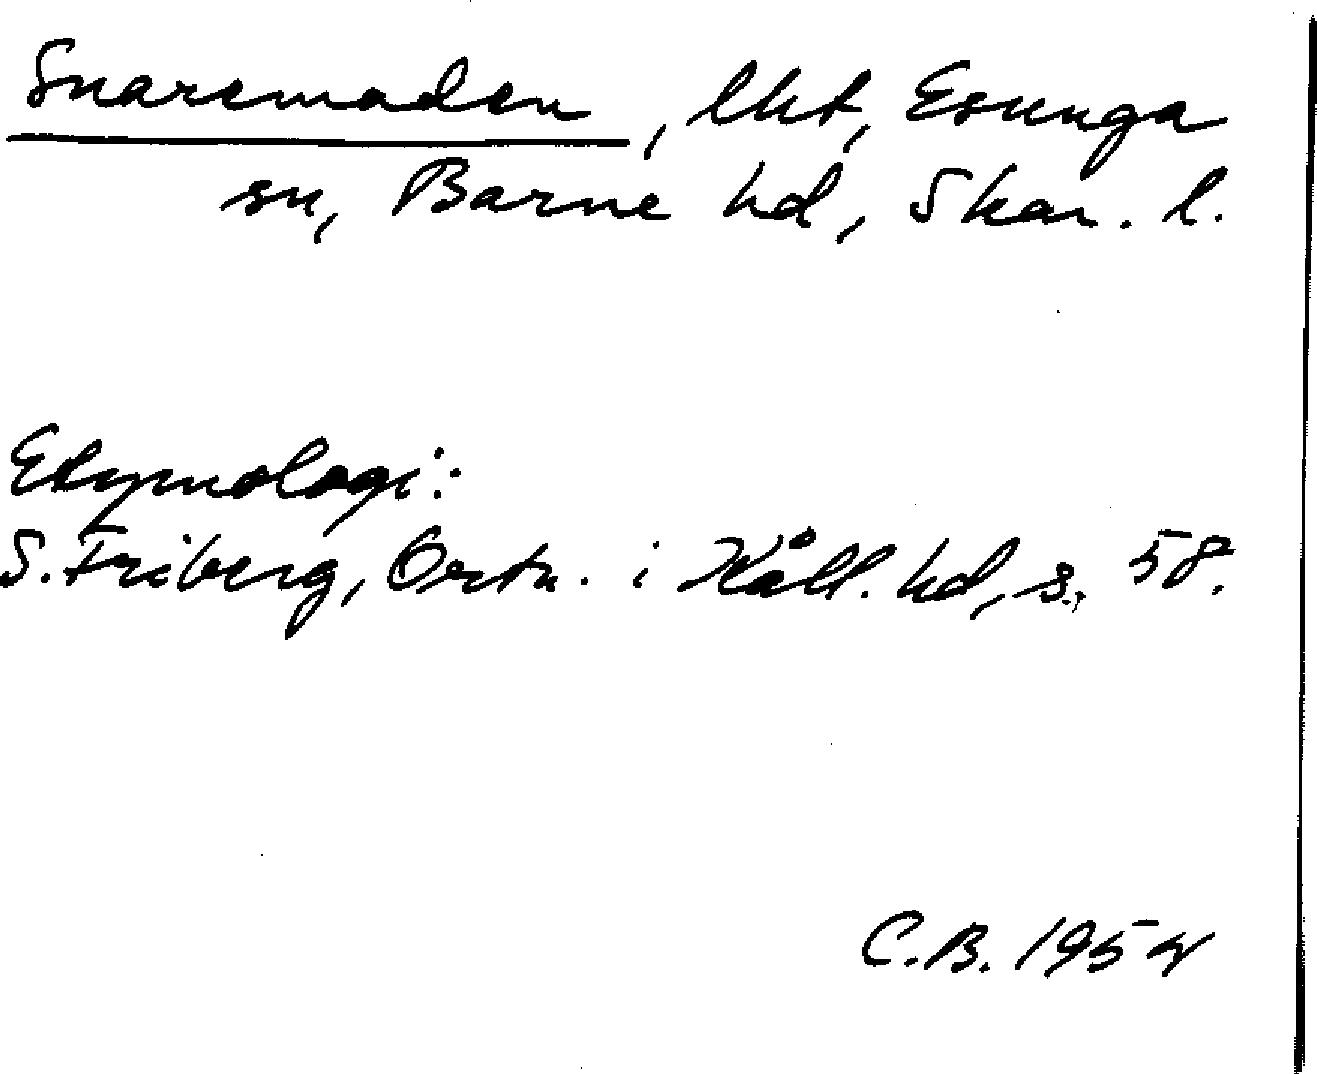 Snaremaden, lht, Esunga
sn, Barne hd, Skar. l.
Etymologi:
S. Friberg, Ortn. i Kåll. hd, s. 58.
C.B. 1954